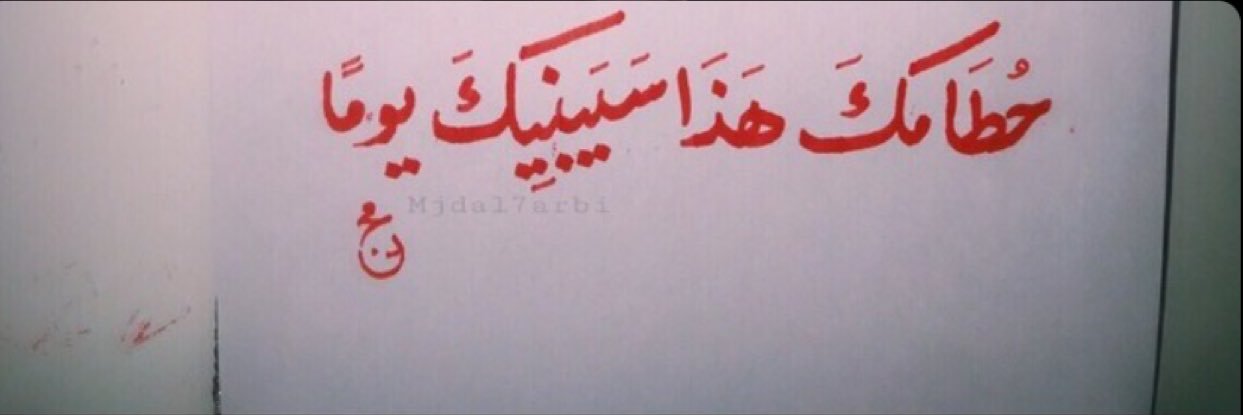 حُطَامكَ هَذَا سَيَبنِيكَ يومًا
Mjdal7arbi